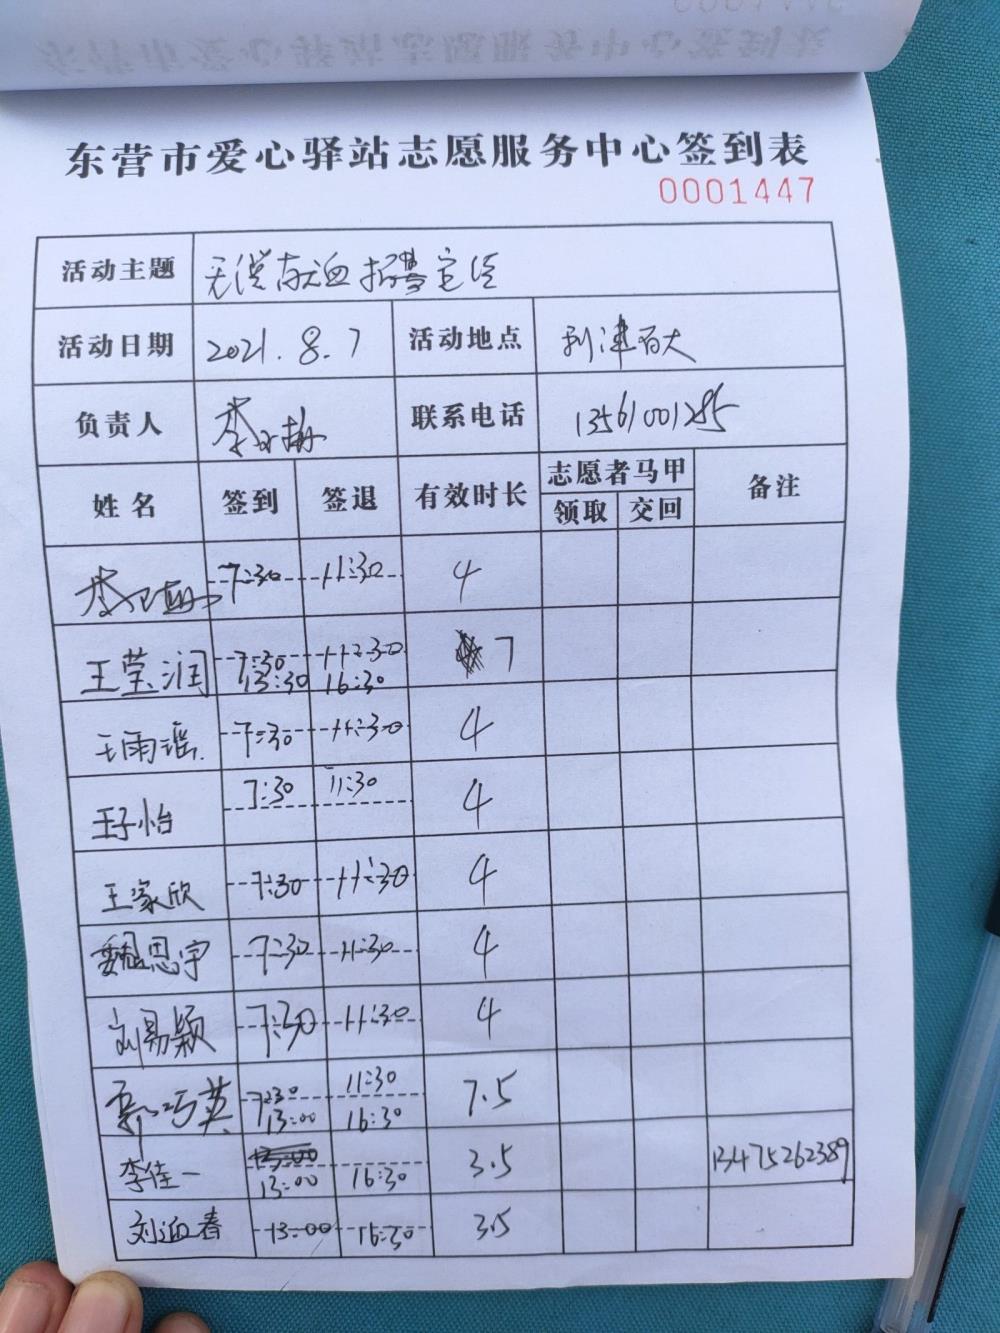 东营市爱心驿站志愿服务中心签到表
0001447
活动主题 无偿献血招募宣传
活动日期 2021.8.7 活动地点 利津百大
负责人 李卫梅 联系电话 13561001285
姓名 签到 签退 有效时长 志愿者马甲 备注
领取 交回
李卫梅 7:30 11:30 4
王莹润 7:30 11:30 7
13:30 16:30
王雨谣 7:30 11:30 4
王子怡 7:30 11:30 4
王家欣 7:30 11:30 4
魏思宇 7:30 11:30 4
刘易颖 7:30 11:30 4
郭巧英 7:30 11:30 7.5
13:00 16:30
李佳一 13:00 16:30 3.5 13475262389
刘迎春 13:00 16:30 3.5